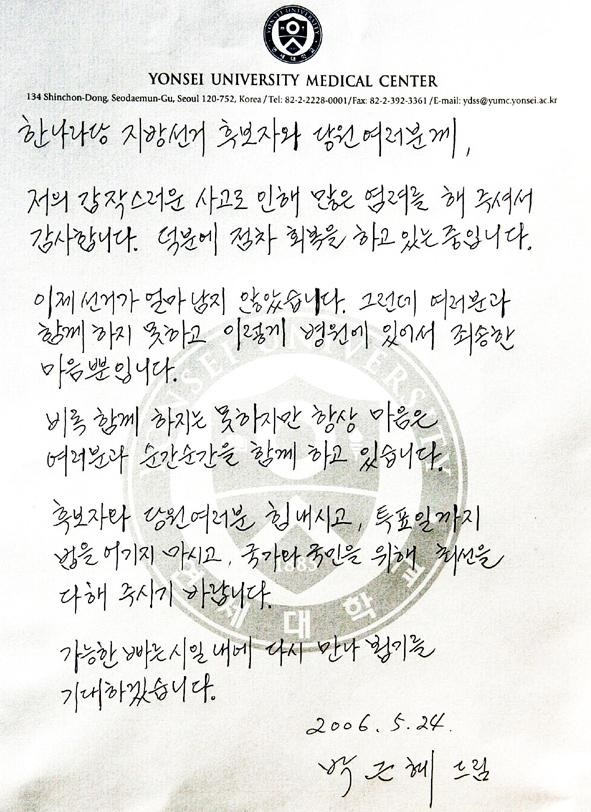 YONSEI UNIVERSITY
YONSEI UNIVERSITY MEDICAL CENTER
134 Shinchon-Dong, Seodaemun-Gu, Seoul 120-752, Korea / Tel: 82-2-2228-0001 / Fax: 82-2-392-3361 / E-mail: ydss@yumc.yonsei.ac.kr
한나라당 지방선거 후보자와 당원여러분께,
저의 갑작스러운 사고로 인해 많은 염려를 해 주셔서
감사합니다. 덕분에 점차 회복을 하고 있는 중입니다.
이제 선거가 얼마 남지 않았습니다. 그런데 여러분과
함께 하지 못하고 이렇게 병원에 있어서 죄송한
마음뿐입니다.
비록 함께 하지는 못하지만 항상 마음은
여러분과 순간순간을 함께 하고 있습니다.
후보자와 당원여러분 힘 내시고, 투표일까지
법을 어기지 마시고, 국가와 국민을 위해 최선을
다해 주시기 바랍니다.
가능한 빠른 시일 내에 다시 만나 뵙기를
기대하겠습니다.
2006. 5. 24.
박근혜 드림
YONSEI UNIVERSITY
1885
연세대학교